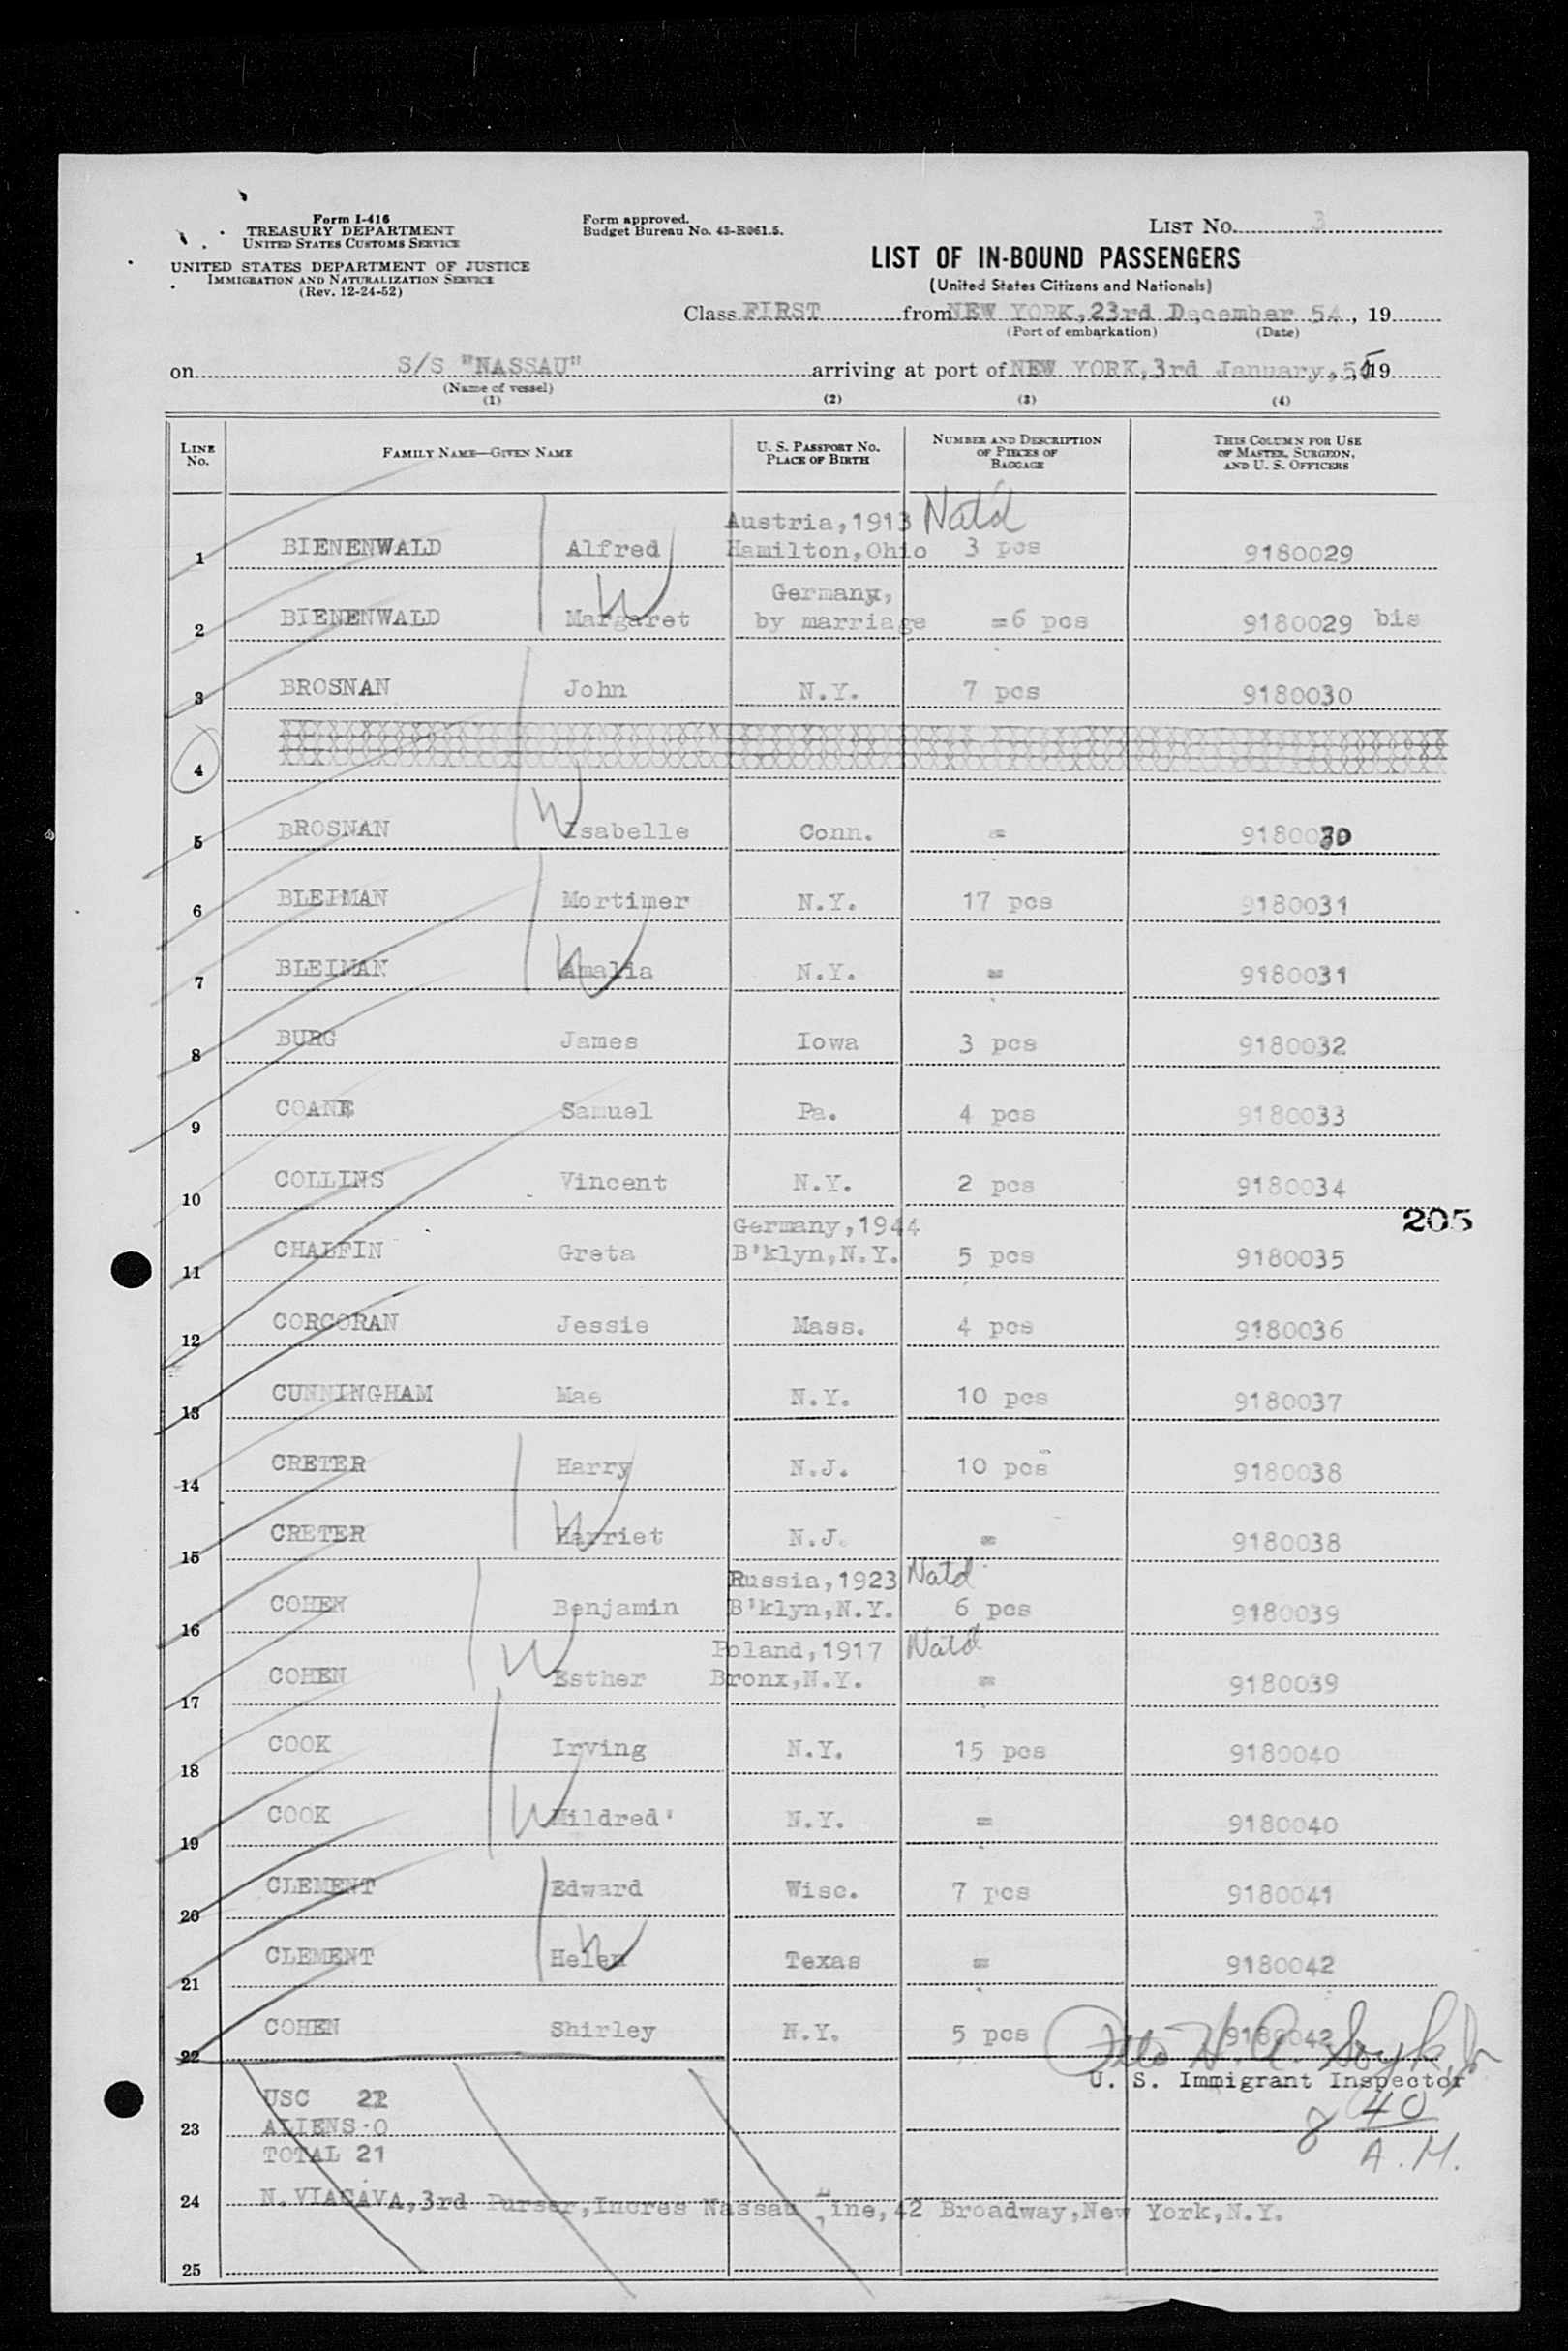 Form I-416
TREASURY DEPARTMENT
UNITED STATES CUSTOMS SERVICE
UNITED STATES DEPARTMENT OF JUSTICE
IMMIGRATION AND NATURALIZATION SERVICE
(Rev. 12-24-52)
Form approved.
Budget Bureau No. 43-R061.5.
LIST NO. 3
LIST OF IN-BOUND PASSENGERS
(United States Citizens and Nationals)
Class FIRST from NEW YORK, 23rd December 54, 19
(Port of embarkation) (Date)
on S/S "NASSAU" arriving at port of NEW YORK, 3rd January, 55 19
(Name of vessel)
(1) (2) (3) (4)
LINE No. FAMILY NAME—GIVEN NAME U. S. PASSPORT NO. PLACE OF BIRTH NUMBER AND DESCRIPTION OF PIECES OF BAGGAGE THIS COLUMN FOR USE OF MASTER, SURGEON, AND U. S. OFFICERS
Austria,1913 Natd
1 BIENENWALD Alfred Hamilton,Ohio 3 pcs 9180029
W
Germany,
2 BIENENWALD Margaret by marriage =6 pcs 9180029 bis
3 BROSNAN John N.Y. 7 pcs 9180030
4
W
5 BROSNAN Isabelle Conn. = 9180030
6 BLEIMAN Mortimer N.Y. 17 pcs 9180031
W
7 BLEIMAN Amalia N.Y. = 9180031
8 BURG James Iowa 3 pcs 9180032
9 COANE Samuel Pa. 4 pcs 9180033
10 COLLINS Vincent N.Y. 2 pcs 9180034
205
Germany,1944
11 CHALFIN Greta B'klyn,N.Y. 5 pcs 9180035
12 CORCORAN Jessie Mass. 4 pcs 9180036
13 CUNNINGHAM Mae N.Y. 10 pcs 9180037
14 CRETER Harry N.J. 10 pcs 9180038
W
15 CRETER Harriet N.J. = 9180038
Russia,1923 Natd
16 COHEN Benjamin B'klyn,N.Y. 6 pcs 9180039
W
Poland,1917 Natd
17 COHEN Esther Bronx,N.Y. = 9180039
18 COOK Irving N.Y. 15 pcs 9180040
W
19 COOK Mildred' N.Y. = 9180040
20 CLEMENT Edward Wisc. 7 pcs 9180041
W
21 CLEMENT Helen Texas = 9180042
22 COHEN Shirley N.Y. 5 pcs 9180042
U. S. Immigrant Inspector
USC 21
23 ALIENS-0
8 40
TOTAL 21
A.M.
24 N.VIACAVA,3rd Purser,Incres Nassau Line,42 Broadway,New York,N.Y.
25